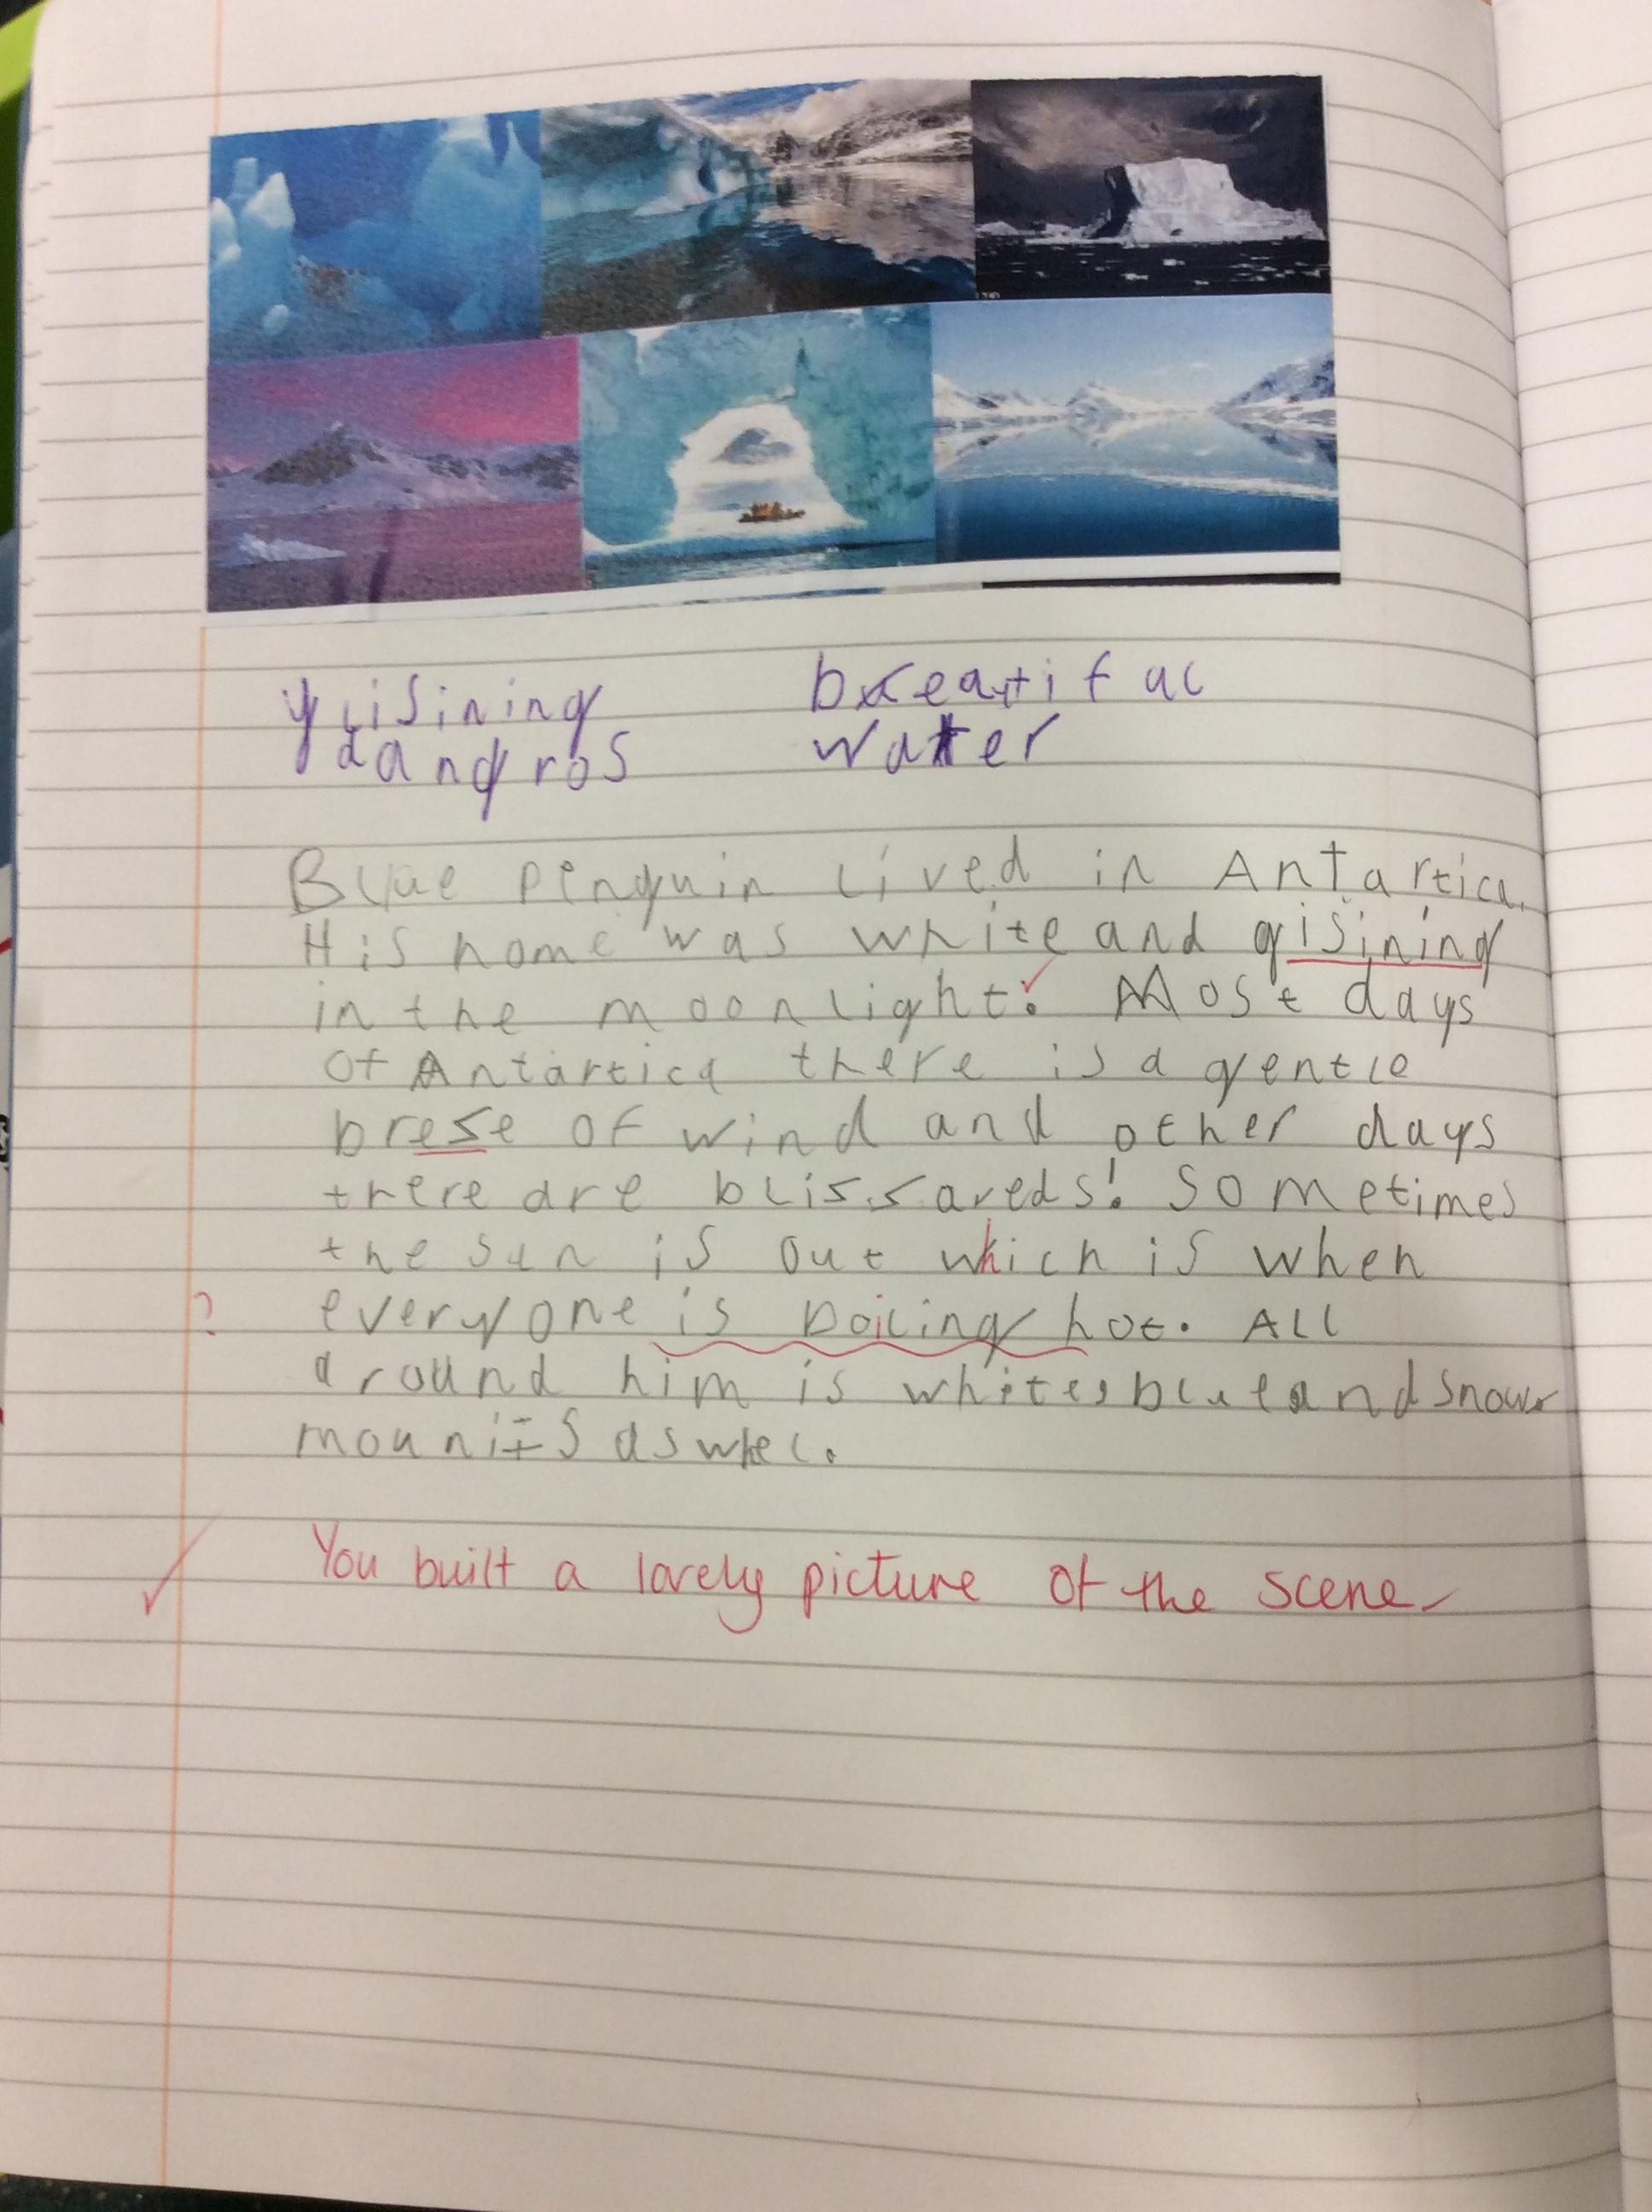 glisining breatiful
dangros water
Blue penguin lived in Antartica.
His home was white and gisining
in the moonlight. Most days
of Antartica there is a gentle
brese of wind and other days
there are blissareds! Sometimes
the sun is out which is when
? everyone is boiling hot. All
around him is white, blue and snow
mounits as wel.
You built a lovely picture of the scene